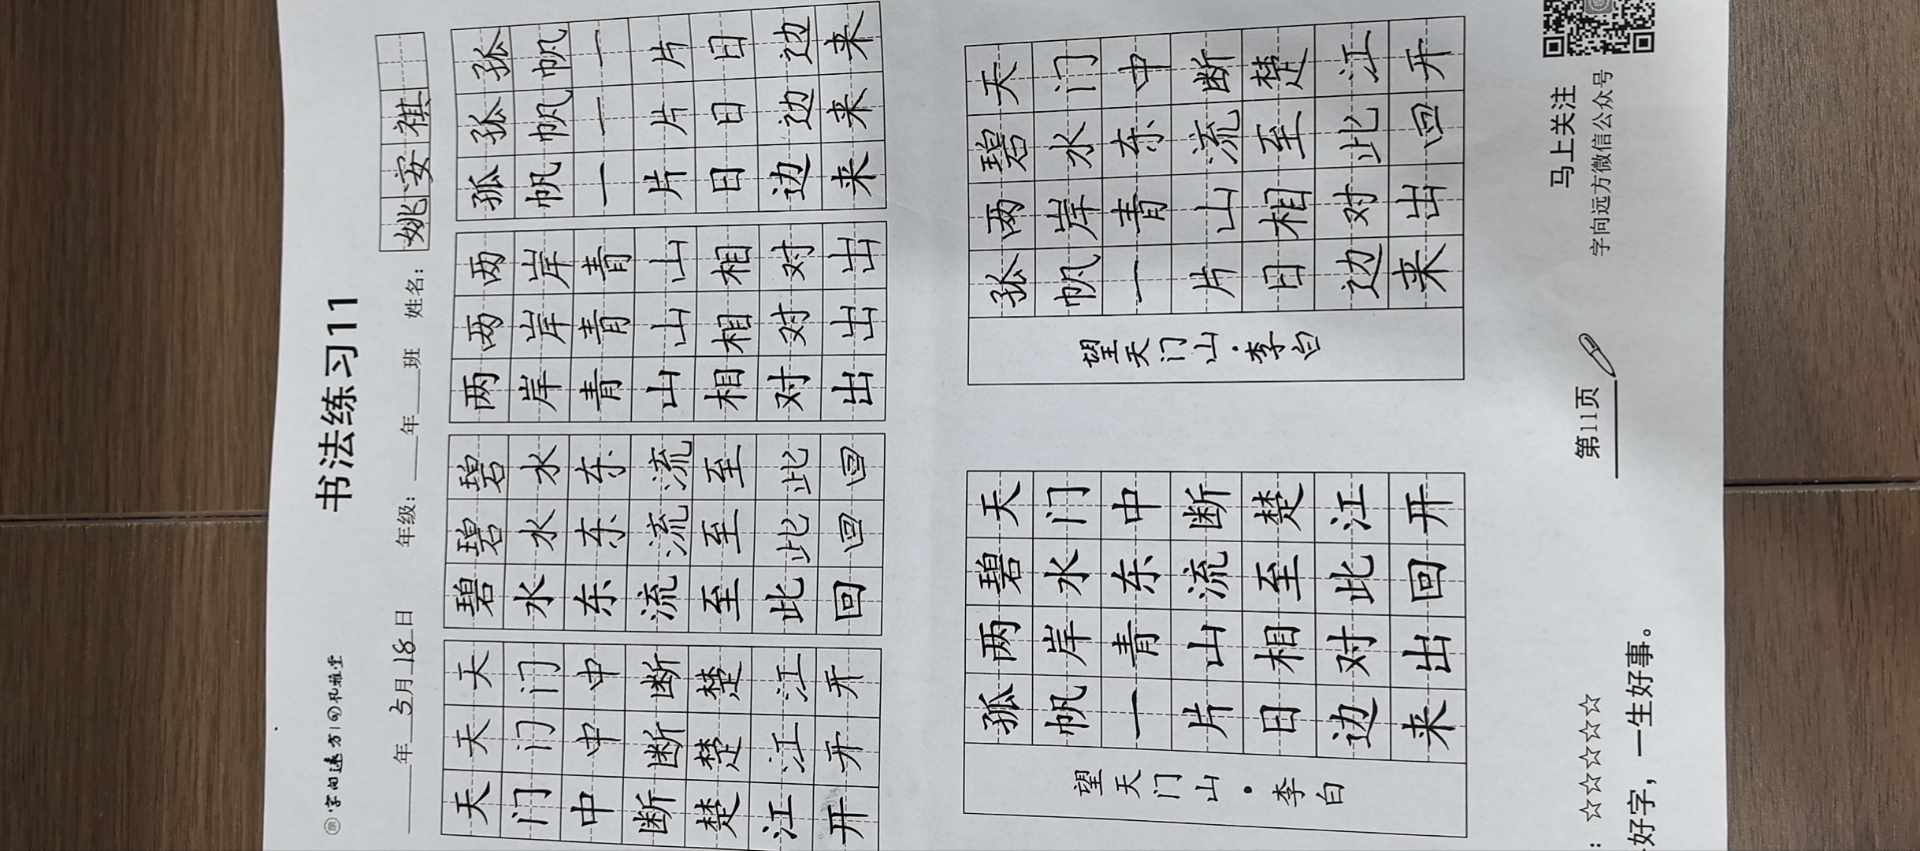 字向远方
书法练习11
年5月18日 年级: 年 班 姓名: 姚安祺
天门中断楚江开
天门中断楚江开
天门中断楚江开
碧水东流至此回
碧水东流至此回
碧水东流至此回
两岸青山相对出
两岸青山相对出
两岸青山相对出
孤帆一片日边来
孤帆一片日边来
孤帆一片日边来
天门中断楚江开
碧水东流至此回
两岸青山相对出
孤帆一片日边来
望天门山·李白
天门中断楚江开
碧水东流至此回
两岸青山相对出
孤帆一片日边来
望天门山·李白
: ☆☆☆☆☆☆
好字，一生好事。
第11页
马上关注
字向远方微信公众号